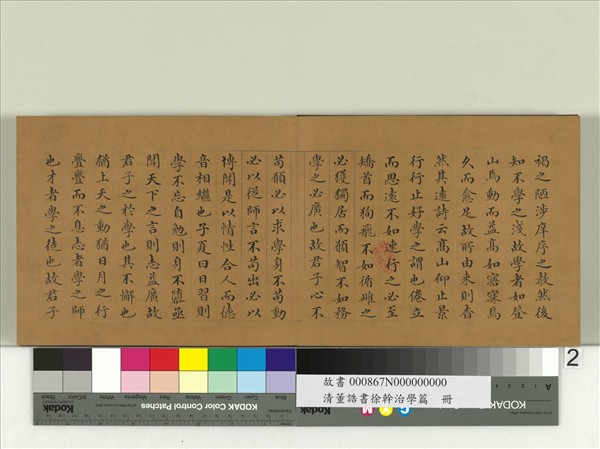 褐之陋涉庠序之教然後
知不學之淺故學者如登
山焉動而益高如寤寐焉
久而愈足故所由來則杳
然其遠詩云高山仰止景
行行止好學之謂也倦立
而思遠不如速行之必至
矯首而徇飛不如循雌之
必獲獨居而願智不如務
學之必廣也故君子心不
苟願必以求學身不苟動
必以從師言不苟出必以
博聞是以情性合人而德
音相繼也子夏曰日習則
學不忘自勉則身不墮亟
聞天下之言則志益廣故
君子之於學也其不懈也
猶上天之動猶日月之行
亹亹而不息志者學之師
也才者學之徒也故君子
2
故書 000867N000000000
清董誥書徐幹治學篇 冊
Kodak
KODAK Color Control Patches
Kodak